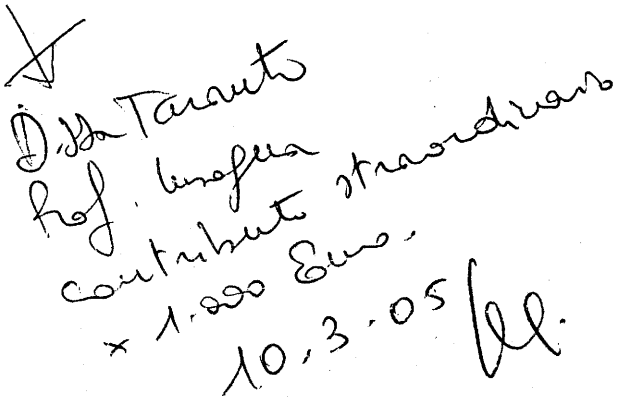 D.ssa Taranto
Prof.
contributo straordinario
x 1.000 Euro.
10.3.05